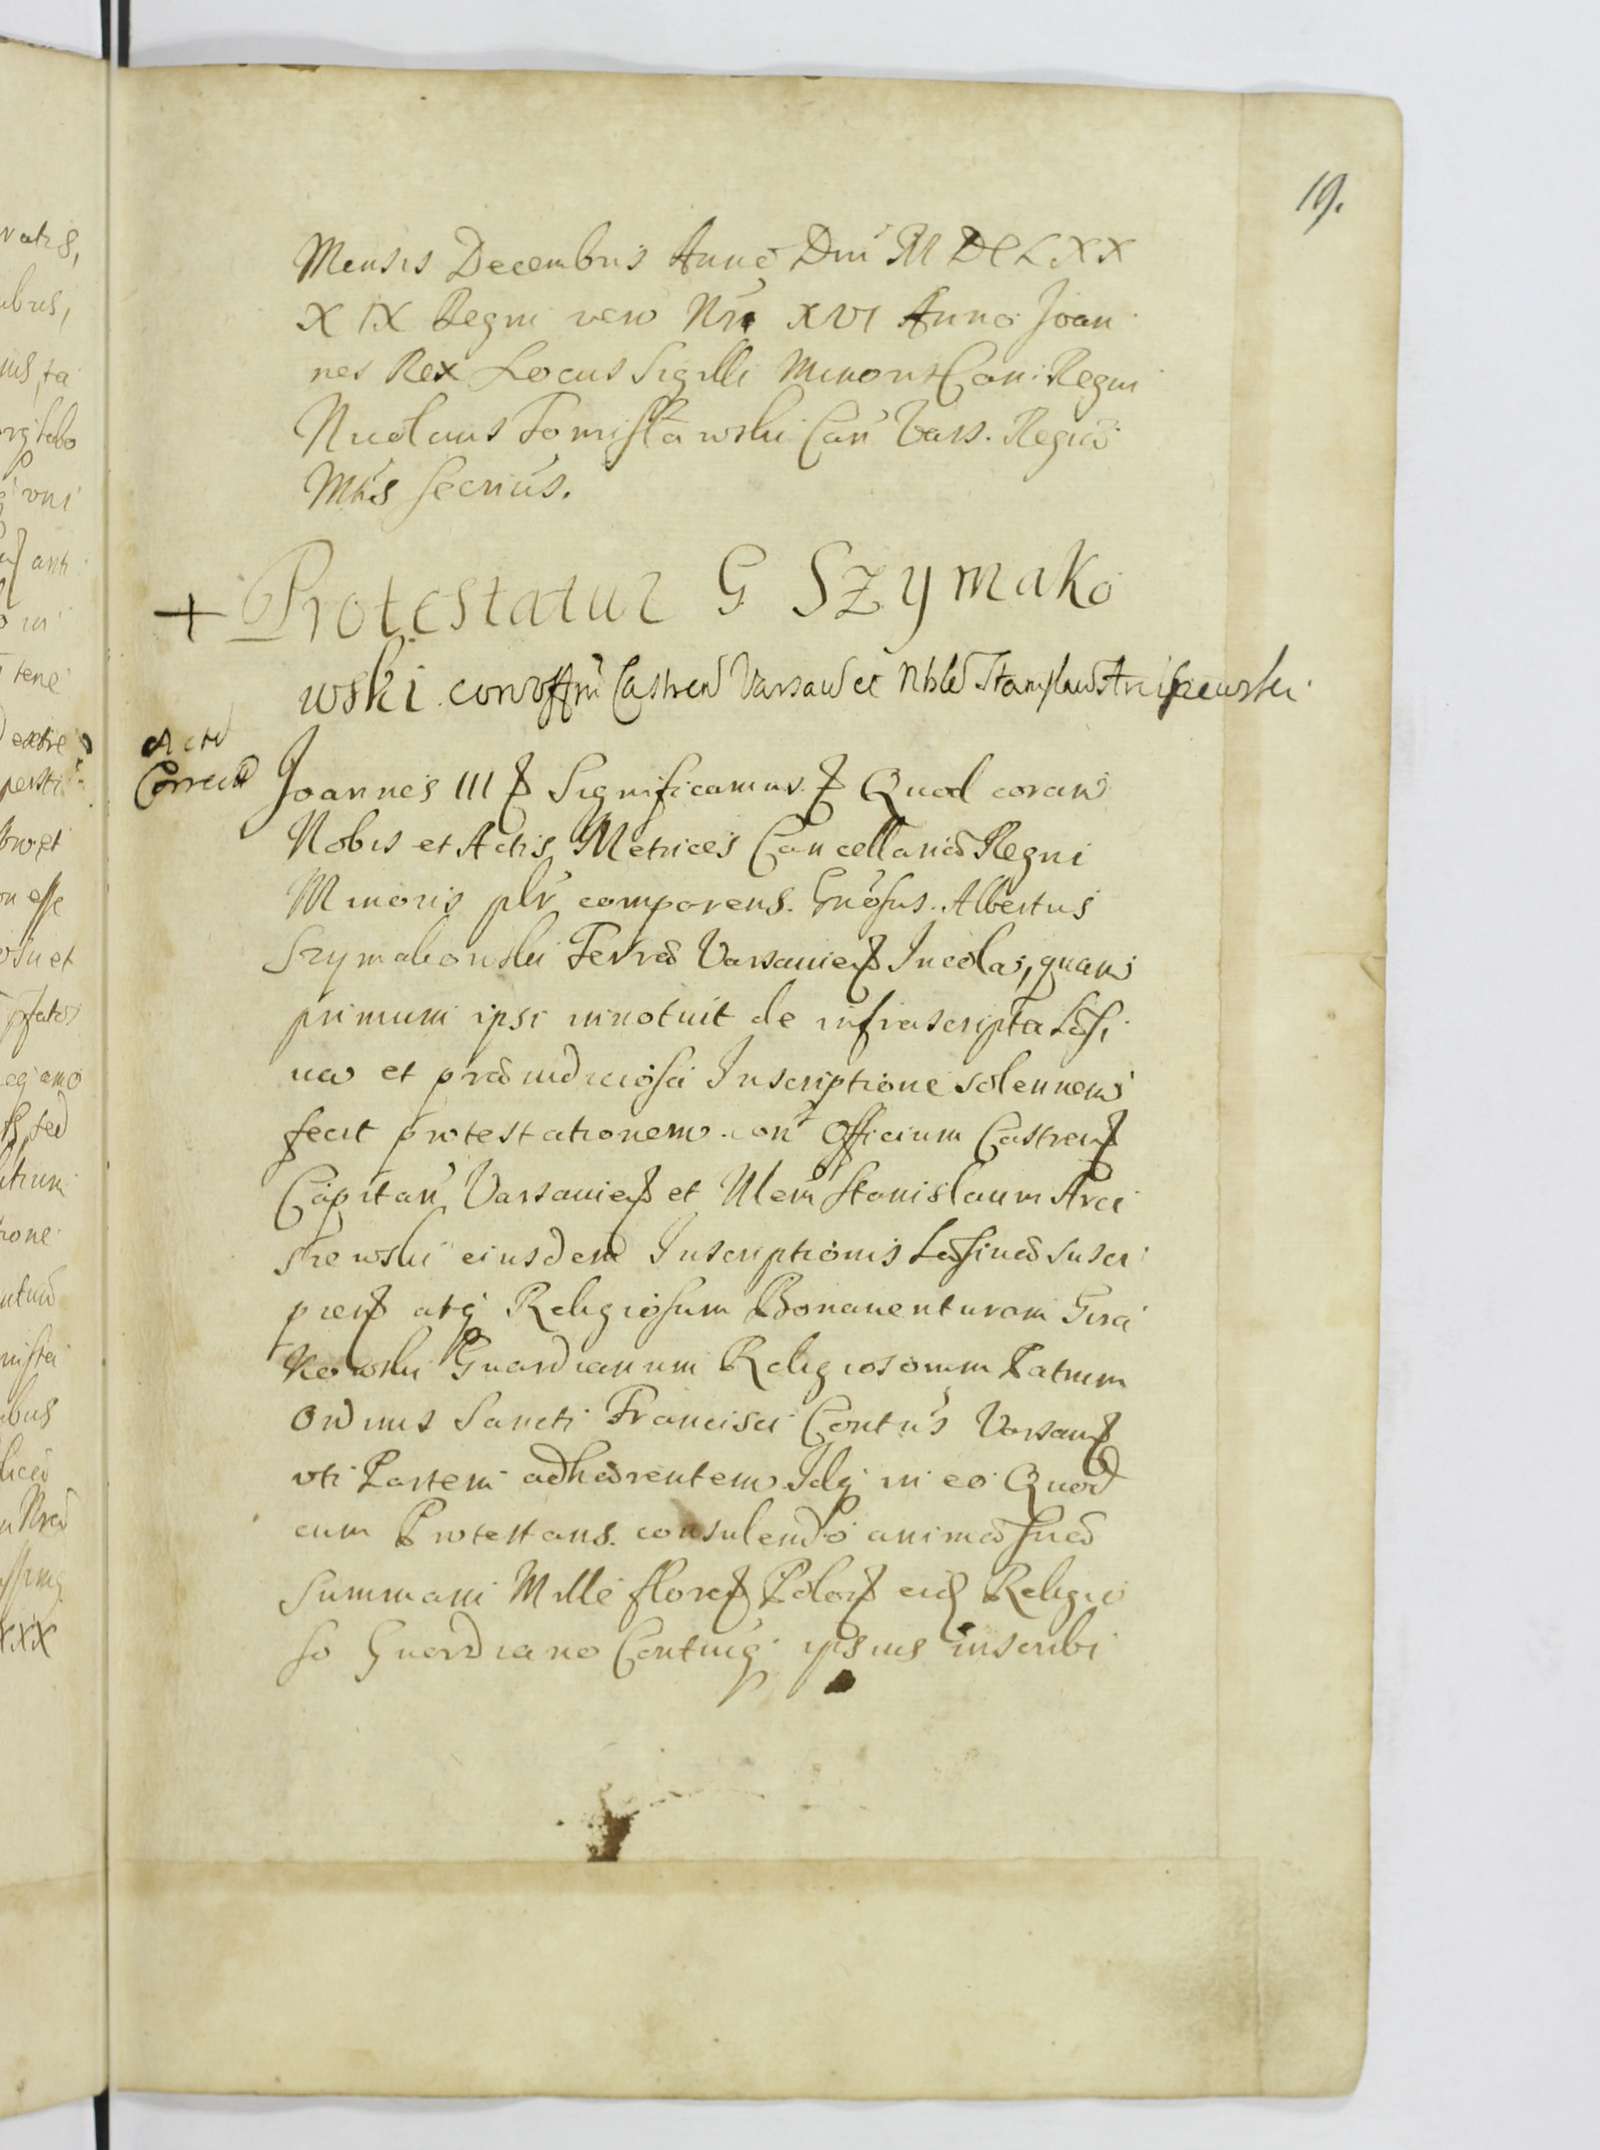 19.
Mensis Decembris Anno Dni M DC LXX
XIX Regni vero Nri XVI Anno Joan
nes Rex Locus Sigilli Minoris Can: Regni
Nicolaus Tomisławski Can Vars. Regiæ
Mtis Secrius.
+ Protestatur G Szymako
wski. con Offm Castren Varsavien et Nblem Stanislaum Arciszewski
Acta
Correcta
Joannes III Significamus. Quod coram
Nobis et Actis Metrices Cancellariæ Regni
Minoris plr comparens. Gnosus. Albertus
Szymakowski Terræ Varsavien Incola, quam
primum ipsi innotuit de infrascripta Læsi
va et præiudiciosa Inscriptione solennem
fecit protestationem. con Officium Castren
Capitan Varsavien et Nlem Stanislaum Arci
szewski eiusdem Inscriptionis Læsivæ susci
pien atq Religiosum Bonaventuram Gira
kowski Guardianum Religiosorum Patrum
Ordinis Sancti Francisci Contus Varsavien
uti Partem adhærentem Idq in eo Quod
cum Protestans. consulendo animæ suæ
Summam Mille floren Polon eid Religio
so Guardiano Contuiq ipsius inscribi